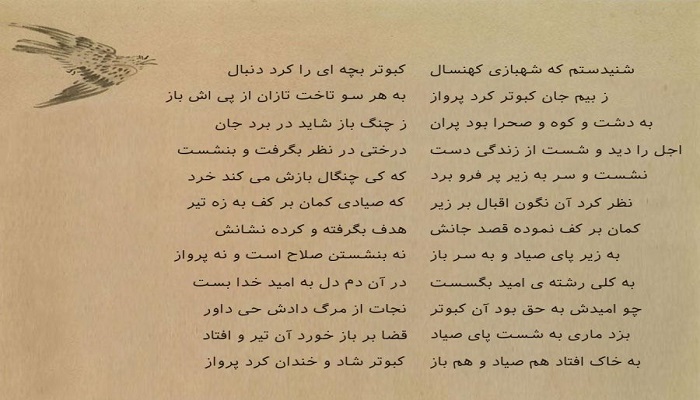 شنیدستم که شهبازی کهنسال کبوتر بچه ای را کرد دنبال
ز بیم جان کبوتر کرد پرواز به هر سو تاخت تازان از پی اش باز
به دشت و کوه و صحرا بود پران ز چنگ باز شاید در برد جان
اجل را دید و شست از زندگی دست درختی در نظر بگرفت و بنشست
نشست و سر به زیر پر فرو برد که کی چنگال بازش می کند خرد
نظر کرد آن نگون اقبال بر زیر که صیادی کمان بر کف به زه تیر
کمان بر کف نموده قصد جانش هدف بگرفته و کرده نشانش
به زیر پای صیاد و به سر باز نه بنشستن صلاح است و نه پرواز
به کلی رشته ی امید بگسست در آن دم دل به امید خدا بست
چو امیدش به حق بود آن کبوتر نجات از مرگ دادش حی داور
بزد ماری به شست پای صیاد قضا بر باز خورد آن تیر و افتاد
به خاک افتاد هم صیاد و هم باز کبوتر شاد و خندان کرد پرواز